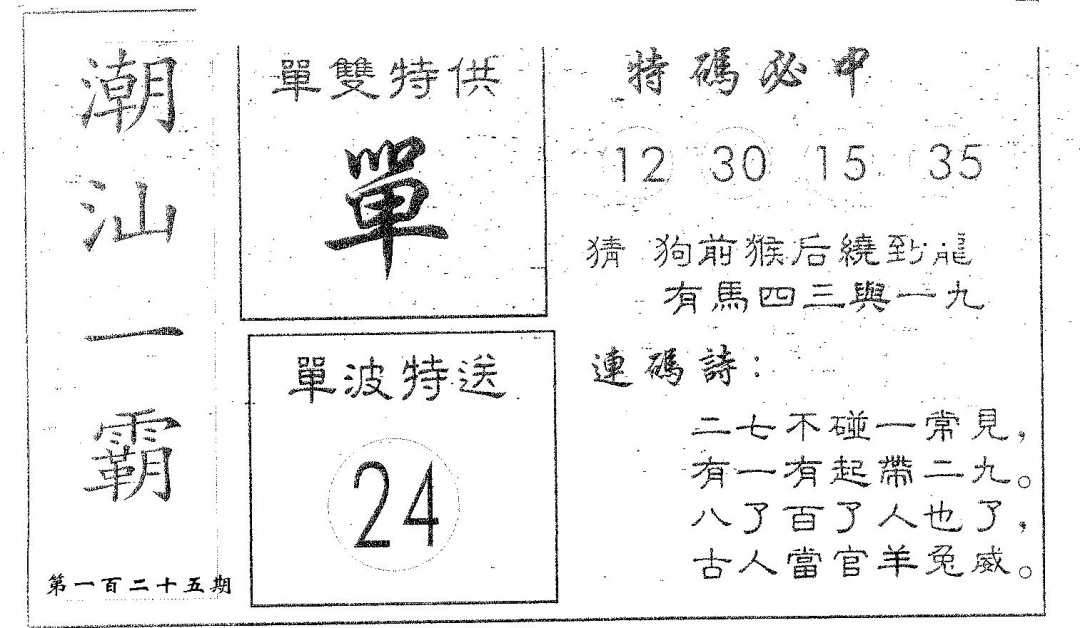 潮汕一霸
第一百二十五期
單雙特供
單
單波特送
24
特碼必中
12 30 15 35
猜 狗前猴后繞到龍
有馬四三與一九
連碼詩：
二七不碰一常見，
有一有起帶二九。
八了百了人也了，
古人當官羊兔威。